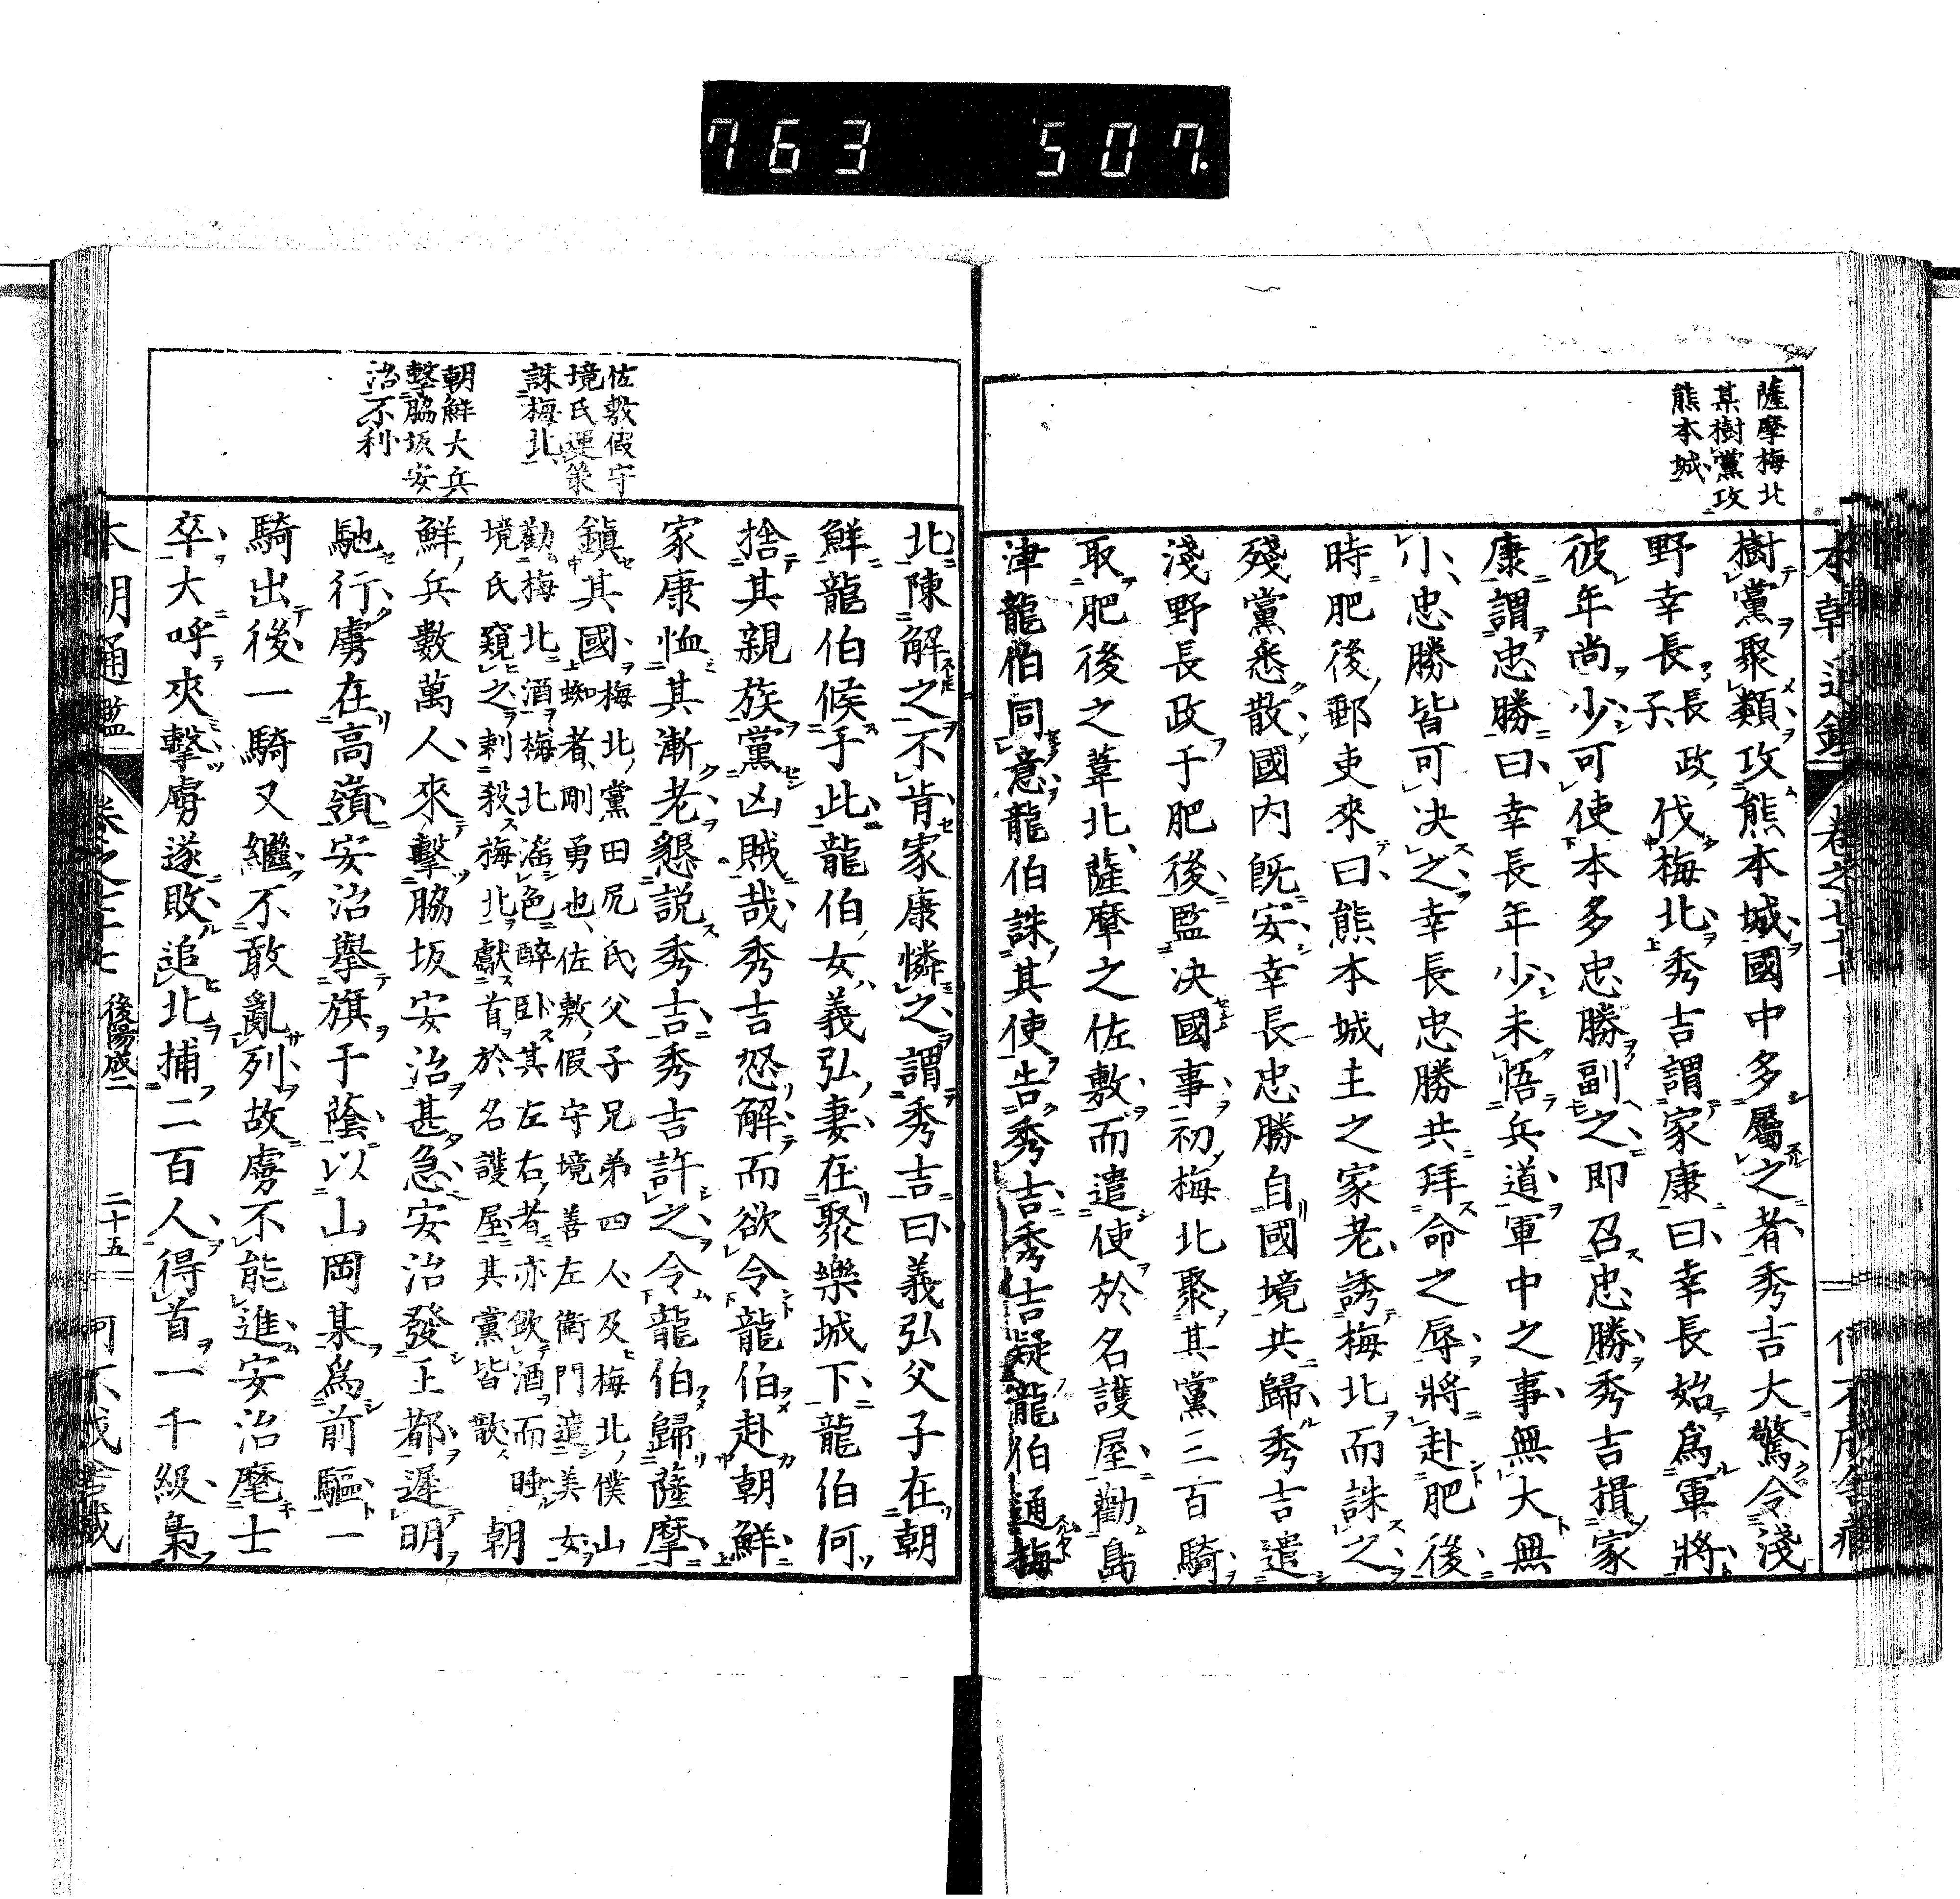 763 507.
薩摩梅北
某樹黨攻
熊本城
樹黨聚類攻熊本城國中多屬之者秀吉大驚令淺
野幸長長政子伐梅北秀吉謂家康曰幸長始爲軍將
彼年尚少可使本多忠勝副之即召忠勝秀吉損家
康謂忠勝曰幸長年少未悟兵道軍中之事無大無
小忠勝皆可決之幸長忠勝共拜命之辱將赴肥後
時肥後郵吏來曰熊本城主之家老誘梅北而誅之
殘黨悉散國内既安幸長忠勝自國境共歸秀吉遣
淺野長政于肥後監決國事初梅北聚其黨三百騎
取肥後之葦北薩摩之佐敷而遣使於名護屋勸島
津龍伯同意龍伯誅其使告秀吉秀吉疑龍伯通梅
佐敷假守
境氏運策
誅梅北
朝鮮大兵
擊脇坂安
治不利
北陳解之不肯家康憐之謂秀吉曰義弘父子在朝
鮮龍伯候于此龍伯女義弘妻在聚樂城下龍伯何
捨其親族黨凶賊哉秀吉怒解而欲令龍伯赴朝鮮
家康恤其漸老懇説秀吉秀吉許之令龍伯歸薩摩
鎮其國梅北黨田尻氏父子兄弟四人及梅北僕山
蜘者剛勇也佐敷假守境善左衛門遣美女
勸梅北酒梅北滛色醉卧其左右者亦飲酒而睡
境氏窺之刺殺梅北獻首於名護屋其黨皆散朝
鮮兵數萬人來擊脇坂安治甚急安治發王都遲明
馳行虜在高嶺安治擧旗于蔭以山岡某爲前驅一
騎出後一騎又繼不敢亂列故虜不能進安治麾士
卒大呼夾擊虜遂敗追北捕二百人得首一千級梟
後陽成二
二十五